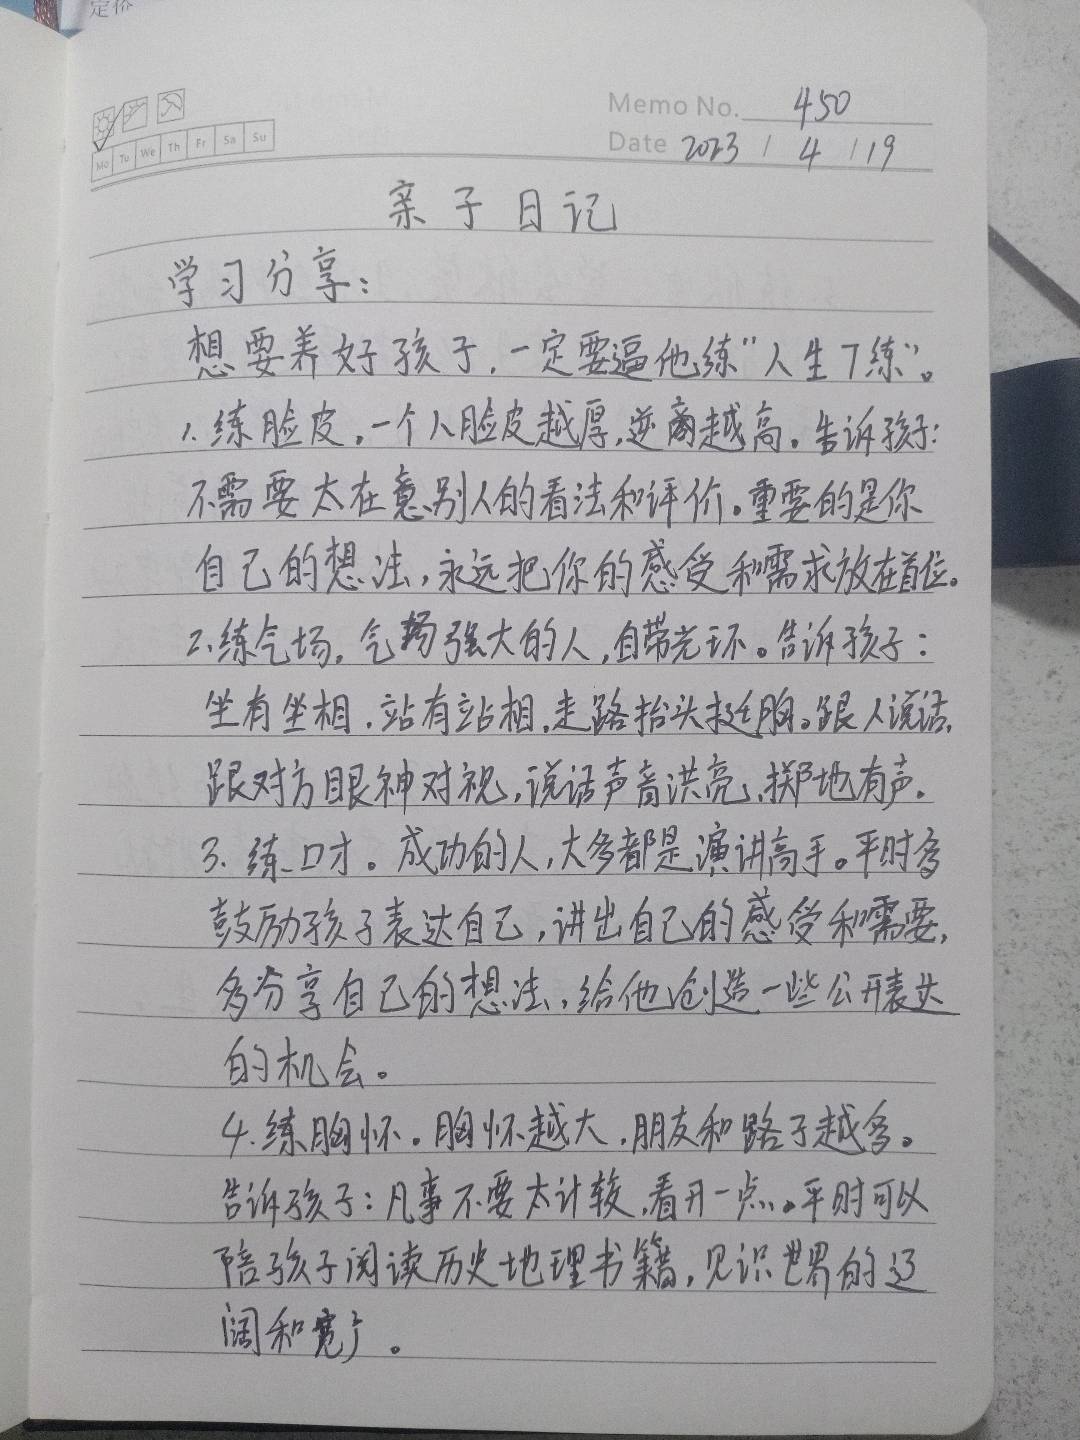 定价
Memo No. 450
Mo Tu We Th Fr Sa Su
Date 2023 / 4 / 19
亲子日记
学习分享：
想要养好孩子，一定要逼他练“人生7练”。
1.练脸皮，一个人脸皮越厚，逆商越高。告诉孩子：
不需要太在意别人的看法和评价。重要的是你
自己的想法，永远把你的感受和需求放在首位。
2.练气场，气场强大的人，自带光环。告诉孩子：
坐有坐相，站有站相，走路抬头挺胸。跟人说话，
跟对方眼神对视，说话声音洪亮，掷地有声。
3.练口才。成功的人，大多都是演讲高手。平时多
鼓励孩子表达自己，讲出自己的感受和需要，
多分享自己的想法，给他创造一些公开表达
的机会。
4.练胸怀。胸怀越大，朋友和路子越多。
告诉孩子：凡事不要太计较，看开一点。平时可以
陪孩子阅读历史地理书籍，见识世界的辽
阔和宽广。